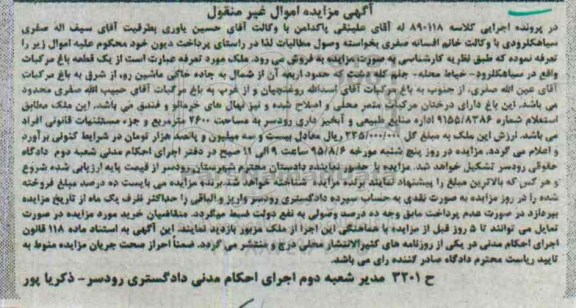 آگهی مزایده اموال غیر منقول
در پرونده اجرایی کلاسه ۸۹۰۱۱۸ له آقای علینقی پاکدامن با وکالت آقای حسین یاوری بطرفیت آقای سیف اله صفری
سیاهکلرودی با وکالت خانم افسانه صفری بخواسته وصول مطالبات لذا در راستای پرداخت دیون خود محکوم علیه اموال زیر را
تعرفه نموده که طبق نظریه کارشناسی به صورت مزایده به فروش می رود. ملک مورد تعرفه عبارت است از یک قطعه باغ مرکبات
واقع در سیاهکلرود- خیاط محله- جلم کله دشت که حدود اربعه آن از شمال به جاده خاکی ماشین رو، از شرق به باغ مرکبات
آقای عین الله صفری، از جنوب به باغ مرکبات آقای اسدالله روغنچیان و از غرب به باغ مرکبات آقای حبیب الله صفری محدود
می باشد. این باغ دارای درختان مرکبات مثمر محلی و اصلاح شده و نیز نهال های خرمالو و فندق می باشد. این ملک مطابق
استعلام شماره ۹۱۵۵/۸۳۸۶ اداره منابع طبیعی و آبخیز داری رودسر به مساحت ۲۶۰۰ مترمربع و جزء مستثنیات قانونی افراد
می باشد. ارزش این ملک به مبلغ کل ۲۳۵/۰۰۰/۰۰۰ ریال معادل بیست و سه میلیون و پانصد هزار تومان در شرایط کنونی برآورد
و اعلام می گردد. مزایده در روز پنج شنبه مورخه ۹۵/۸/۶ ساعت ۹ الی ۱۱ صبح در دفتر اجرای احکام مدنی شعبه دوم دادگاه
حقوقی رودسر تشکیل خواهد شد. مزایده با حضور نماینده دادستان محترم شهرستان رودسر از قیمت پایه ارزیابی شده شروع
و هر کس که بالاترین مبلغ را پیشنهاد نمایند برنده مزایده شناخته خواهد شد. برنده مزایده می بایست ده درصد مبلغ فروخته
شده را در روز مزایده به صورت نقدی به حساب سپرده دادگستری رودسر واریز و الباقی را حداکثر ظرف یک ماه از تاریخ مزایده
بپردازد در صورت عدم پرداخت مابق وجه ده درصد وصولی به نفع دولت ضبط میگردد. متقاضیان خرید مورد مزایده در صورت
تمایل می توانند تا ۵ روز قبل از مزایده با هماهنگی این اجرا از ملک مزبور بازدید نمایند. این آگهی به استناد ماده ۱۱۸ قانون
اجرای احکام مدنی در یکی از روزنامه های کثیرالانتشار محلی درج و منتشر می گردد. ضمناً احراز صحت جریان مزایده منوط به
تایید ریاست محترم دادگاه صادر کننده رای می باشد.
ح ۳۲۰۱ مدیر شعبه دوم اجرای احکام مدنی دادگستری رودسر- ذکریا پور